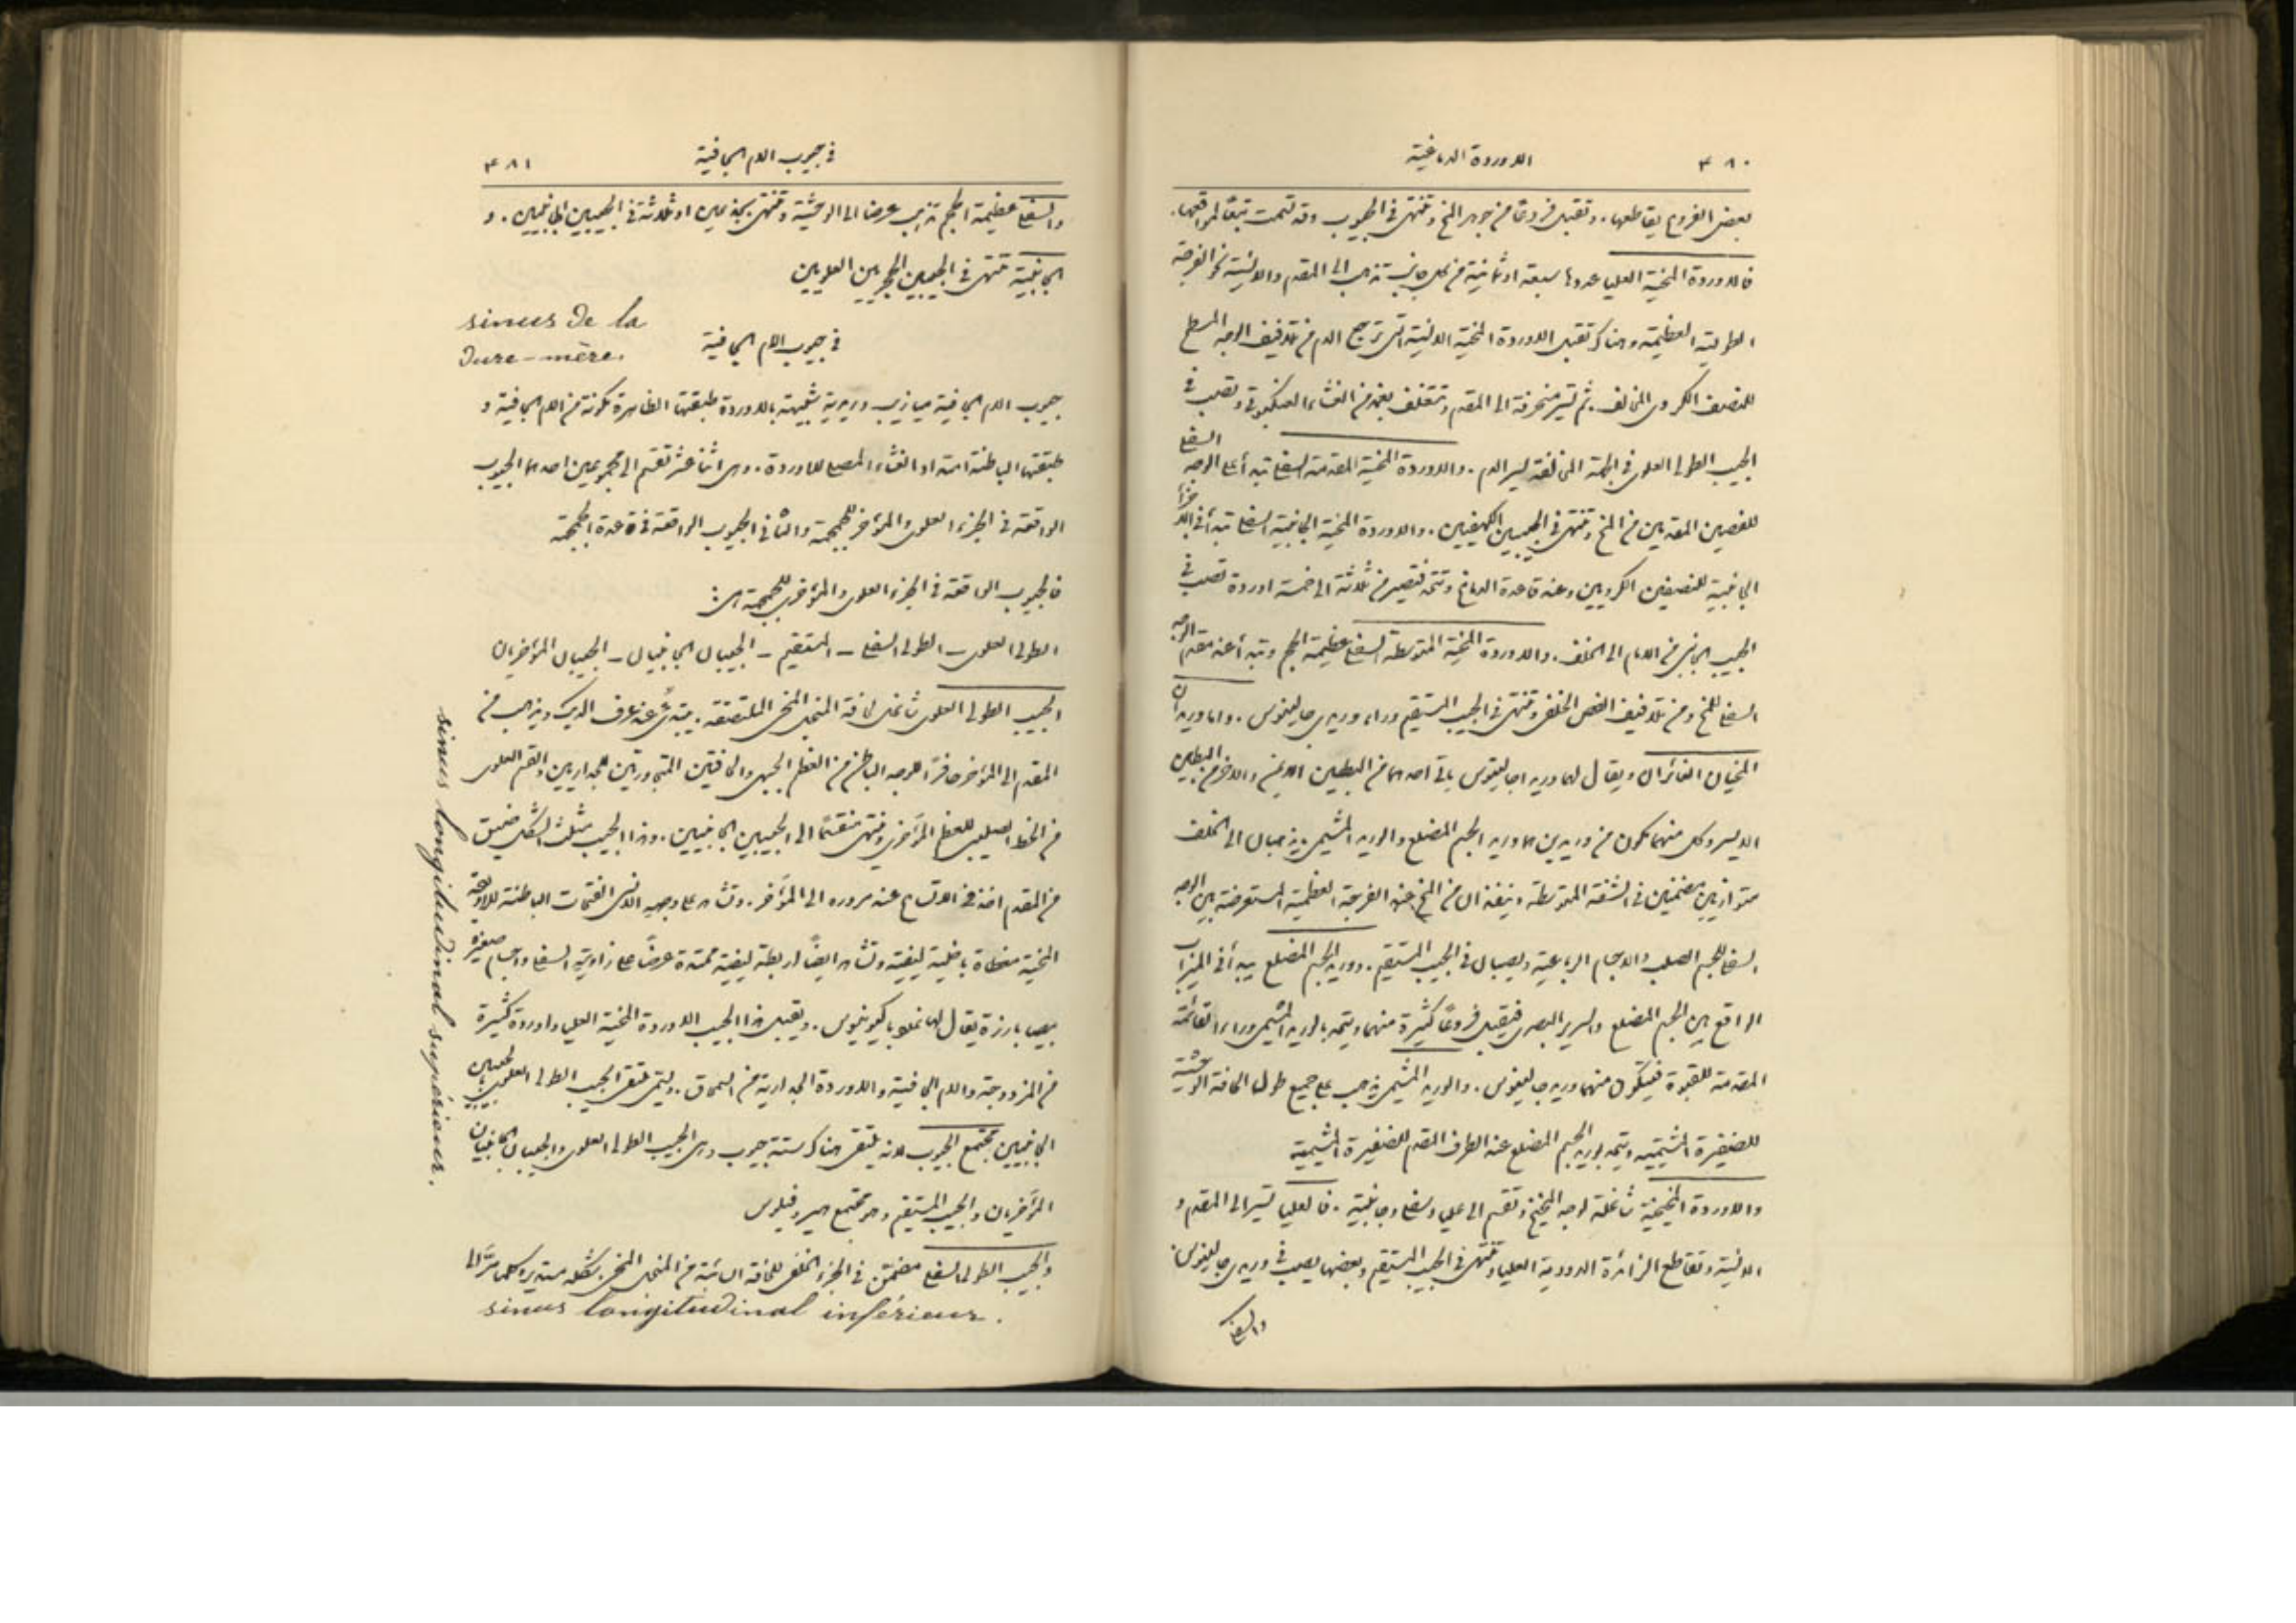 ٤٨٠
الاوردة الدماغية
بعض الفروع يقاطعها. وتقبل فروعًا من جوهر المخ وتنتهي في الجيوب وقد قسمت تبعًا لمواقعها.
فالاوردة المخية العليا عددها سبعة او ثمانية من كل جانب تذهب الى المقدم والانسية نحو الفرجة
الطولية العظيمة وهناك تقبل الاوردة المخية الانسية التي ترجع الدم من تلافيف الوجه المسطح
للنصف الكروي المخالف. ثم تسير منحرفة الى المقدم وتتغلف بغمد من الغشاء العنكبوتي وتصب في
الجيب الطولي العلوي في الجهة المخالفة لسير الدم. والاوردة المخية المقدمة السفلى تبدأ على الوجه السفلي
للفصين المقدمين من المخ وتنتهي في الجيبين الكهفيين. والاوردة المخية الجانبية السفلى تبدأ في الاجزاء
الجانبية للنصفين الكرويين وعند قاعدة الدماغ وتتحد فتصير من ثلاثة الى خمسة اوردة تصب في
الجيب الجانبي من الامام الى الخلف. والاوردة المخية المتوسطة السفلى عظيمة الحجم وتبدأ عند مقدم الوجه
السفلي للمخ ومن تلافيف الفص الخلفي وتنتهي في الجيب المستقيم وراء وريدي جالينوس. واما الوريدان
المخيان الغائران ويقال لهما وريدا جالينوس ياتي احدهما من البطين الايمن والاخر من البطين
الايسر وكل منهما مكون من وريدين هما وريد الجسم المضلع والوريد المشيمي يذهبان الى الخلف
متوازيين مضمنين في الشقة المتوسطة وينفذان من المخ عند الفرجة العظيمة المستعرضة بين الوجه
السفلي للجسم الصلب والاجسام الرباعية ويصبان في الجيب المستقيم. ووريد الجسم المضلع يبدأ في الميزاب
الواقع بين الجسم المضلع والسرير البصري فيقبل فروعًا كثيرة منهما ويتحد بالوريد المشيمي وراء القائمة
المقدمة للقبوة فيتكون منهما وريد جالينوس. والوريد المشيمي يذهب على جميع طول الحافة الوحشية
للضفيرة المشيمية ويتحد بوريد الجسم المضلع عند الطرف المقدم للضفيرة المشيمية
والاوردة المخيخية شاغلة لوجه المخيخ وتقسم الى عليا وسفلى وجانبية. فالعليا تسير الى المقدم و
الانسية وتقاطع الزائدة الدودية العليا وتنتهي في الجيب المستقيم وبعضها يصب في وريدي جالينوس
والسفلى
في جيوب الام الجافية
٤٨١
والسفلى عظيمة الحجم تذهب عرضا الى الوحشية وتنتهي بجذعين او ثلاثة في الجيبين الجانبيين. و
الجانبية تنتهي في الجيبين الحجريين العلويين
sinus de la
Dure-mère.
في جيوب الام الجافية
جيوب الام الجافية ميازيب وريدية شبيهة بالاوردة طبقتها الظاهرة مكونة من الام الجافية و
طبقتها الباطنة امتداد الغشاء المصلي للاوردة. وهي اثنا عشر تقسم الى مجموعين احدهما الجيوب
الواقعة في الجزء العلوي والمؤخر للجمجمة والثاني الجيوب الواقعة في قاعدة الجمجمة
فالجيوب الواقعة في الجزء العلوي والمؤخر للجمجمة هي:
الطولي العلوي - الطولي السفلي - المستقيم - الجيبان الجانبيان - الجيبان المؤخريان
الجيب الطولي العلوي شاغل لحافة المنجل المخي الملتصقة. يبتدئ عند عرف الديك ويذهب من
المقدم الى المؤخر حافرًا للوجه الباطن من العظم الجبهي والحافتين المتجاورتين للجداريين والقسم العلوي
من الخط الصليبي للعظم المؤخري وينتهي منقسمًا الى الجيبين الجانبيين. وهذا الجيب مثلث الشكل ضيق
من المقدم اخذ في الاتساع عند مروره الى المؤخر. وتشاهد على وجهه الانسي الفتحات الباطنة للاوردة
المخية مغطاة باخلية ليفية وتشاهد ايضًا اربطة ليفية ممتدة عرضًا على زاويته السفلى واجسام صغيرة
بيضا بارزة يقال لها غدد باكيونيوس. ويقبل هذا الجيب الاوردة المخية العليا واوردة كثيرة
من المزدوجة والام الجافية والاوردة الجدارية من السمحاق. ويسمى ملتقى الجيب الطولي العلوي بالجيبين
الجانبيين مجتمع الجيوب لانه يلتقي هناك ستة جيوب وهي الجيب الطولي العلوي والجيبان الجانبيان
المؤخريان والجيب المستقيم وهو مجتمع هيروفيلوس
والجيب الطولي السفلي مضمن في الجزء الخلفي للحافة السائبة من المنجل المخي. شكله مستدير
sinus longitudinal supérieur.
sinus longitudinal inférieur.